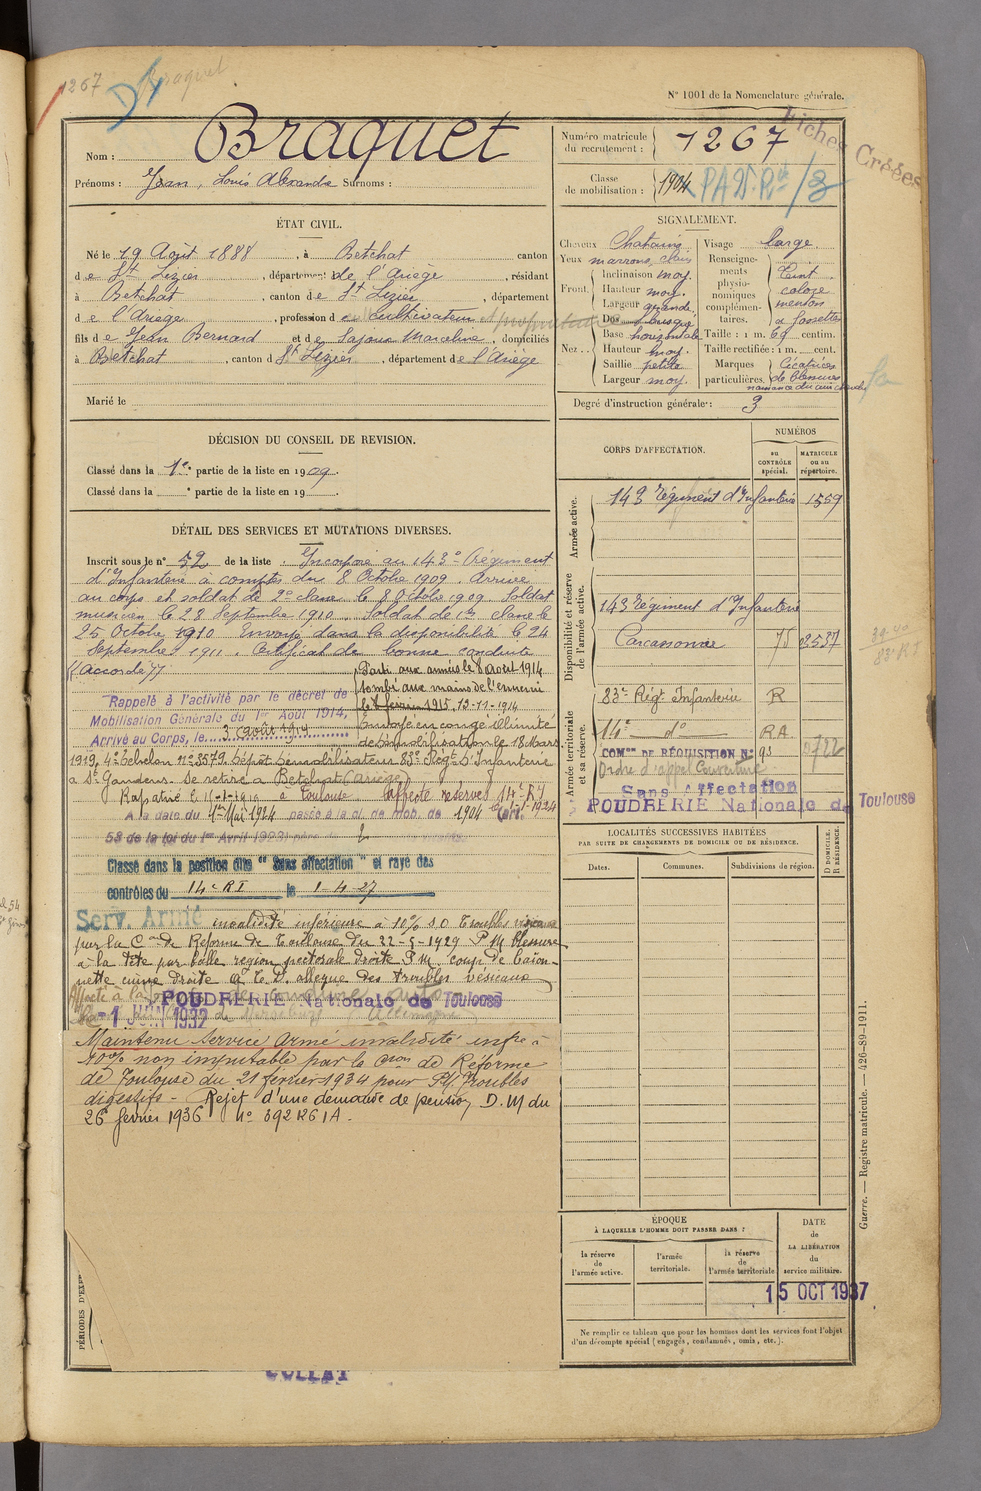 1267
Braquet
N° 1001 de la Nomenclature générale.
Fiches Créées
Nom : Braquet
Prénoms : Jean, Louis Alexandre Surnoms :
Numéro matricule du recrutement : 1267
Classe de mobilisation : 1904
ÉTAT CIVIL.
Né le 19 Août 1888, à Betchat canton
de St Lizier, département de l'Ariège, résidant
à Betchat, canton de St Lizier, département
de l'Ariège, profession de Cultivateur et propriétaire
fils de Jean Bernard et de Lajous Marceline, domiciliés
à Betchat, canton d St Lizier, département de l'Ariège
Marié le
SIGNALEMENT.
Cheveux Chatains
Yeux marrons clairs
Front. Inclinaison moy.
Hauteur moy.
Largeur grande.
Nez... Dos busqué
Base horizontale
Hauteur moy.
Saillie petite
Largeur moy.
Visage large.
Renseignements physionomiques complémentaires. Teint coloré menton à fossette
Taille : 1 m. 69 centim.
Taille rectifiée : 1 m. cent.
Marques particulières. Cicatrices de blessures
Degré d'instruction générale : 3
DÉCISION DU CONSEIL DE REVISION.
Classé dans la 1e partie de la liste en 1909.
Classé dans la e partie de la liste en 19 .
DÉTAIL DES SERVICES ET MUTATIONS DIVERSES.
Inscrit sous le n° 52 de la liste. Incorporé au 143e Régiment
d'Infanterie à compter du 8 Octobre 1909. Arrivé
au corps et soldat de 2e classe le 8 Octobre 1909 Soldat
musicien le 28 Septembre 1910. Soldat de 1re classe le
25 Octobre 1910 Envoyé dans la disponibilité le 24
Septembre 1911. Certificat de bonne conduite
"Accordé"
Rappelé à l'activité par le décret de
Mobilisation Générale du 1er Août 1914,
Arrivé au Corps, le 3 août 1914
Parti aux armées le 8 août 1914
tombé aux mains de l'ennemi
le 8 février 1915, 13-11-1914
Envoyé en congé illimité
de démobilisation le 18 Mars
1919, 4e échelon n° 3579, dépôt démobilisateur 83e Régt d'Infanterie
à St Gaudens. Se retire à Betchat (Ariège)
Rapatrié le 11-1-1919 à Toulouse Affecté réserves 14e RI
A la date du 1er Mai 1924 passé à la cl. de mob. de 1904
58 de la loi du 1er Avril 1923) père de 2
Classé dans la position dite "Sans affectation" et rayé des
contrôles du 14e RI le 1-4-27
Serv. Armé invalidité inférieure à 10% S O Troubles
par la Con de Réforme de Toulouse du 22-5-1929 P M blessure
à la tête par balle région pectorale droite P M coup de baïon-
nette cuisse droite allègue des troubles vésicaux
Affecté à la POUDRERIE Nationale de Toulouse
le -1 JUIN 1932
Maintenu Service Armé invalidité infre à
10% non imputable par la Cion de Réforme
de Toulouse du 21 février 1934 pour P M Troubles
digestifs - Rejet d'une demande de pension, D. M du
26 fevrier 1936 N° 392 126 1A.
PÉRIODES D'EXE
CORPS D'AFFECTATION.
NUMÉROS
au CONTRÔLE spécial.
MATRICULE ou au répertoire.
Armée active.
143 Régiment d'Infanterie 1559
Disponibilité et réserve de l'armée active.
143 Régiment d'Infanterie
Carcassonne
39-40
83e RI
Armée territoriale et sa réserve.
83e Régt Infanterie R
14e do RA
COMon DE RÉQUISITION N° 93
Ordre d'appel Couverture
Sans Affectation
POUDRERIE Nationale de Toulouse
LOCALITÉS SUCCESSIVES HABITÉES
PAR SUITE DE CHANGEMENTS DE DOMICILE OU DE RÉSIDENCE.
Dates.
Communes.
Subdivisions de région.
D DOMICILE. R RÉSIDENCE.
ÉPOQUE
À LAQUELLE L'HOMME DOIT PASSER DANS :
la réserve de l'armée active.
l'armée territoriale.
la réserve de l'armée territoriale
DATE de LA LIBÉRATION du service militaire.
15 OCT 1937
Ne remplir ce tableau que pour les hommes dont les services font l'objet
d'un décompte spécial (engagés, condamnés, omis, etc.).
Guerre. — Registre matricule. — 426-89-1911.